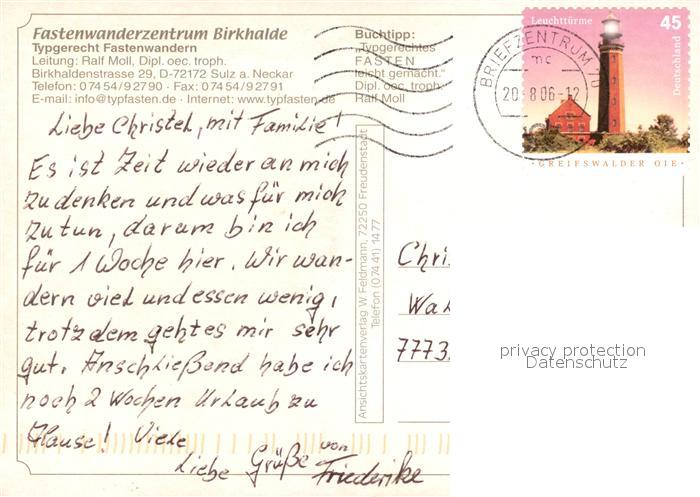 Fastenwanderzentrum Birkhalde
Typgerecht Fastenwandern
Leitung: Ralf Moll, Dipl. oec. troph.
Birkhaldenstrasse 29, D-72172 Sulz a. Neckar
Telefon: 07454/92790 · Fax: 07454/92791
E-mail: info@typfasten.de · Internet: www.typfasten.de
Buchtipp:
„Typgerechtes
FASTEN
leicht gemacht."
Dipl. oec. troph.
Ralf Moll
Leuchttürme 45
Deutschland
GREIFSWALDER OIE
BRIEFZENTRUM 70
mc
20.8.06-12
Liebe Christel, mit Familie!
Es ist Zeit wieder an mich
zu denken und was für mich
zu tun, darum bin ich
für 1 Woche hier. Wir wan-
dern viel und essen wenig,
trotzdem geht es mir sehr
gut. Anschließend habe ich
noch 2 Wochen Urlaub zu
Hause! Viele
Liebe Grüße von
Friederike
Ansichtskartenverlag W. Feldmann, 72250 Freudenstadt
Telefon (07441) 1477
Chri
Wal
7773
privacy protection
Datenschutz